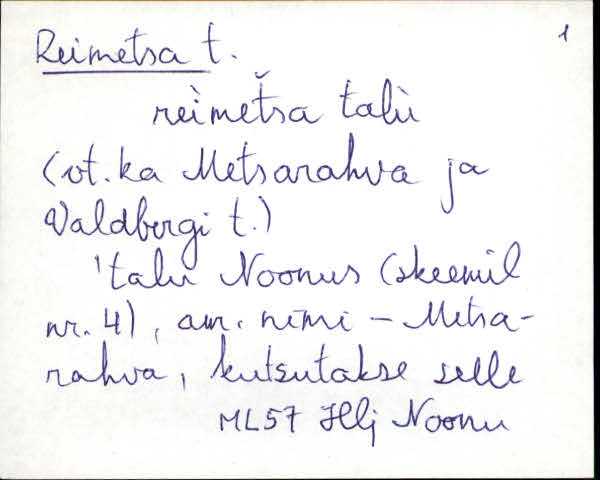 Reimetsa t.
1
reìmeťša talù
(vt. ka Metsarahva ja
Valdbergi t.)
'talu Noonus (skeemil
nr. 4), am. nimi – Metsa-
rahva, kutsutakse selle
ML57 Hlj Noonu